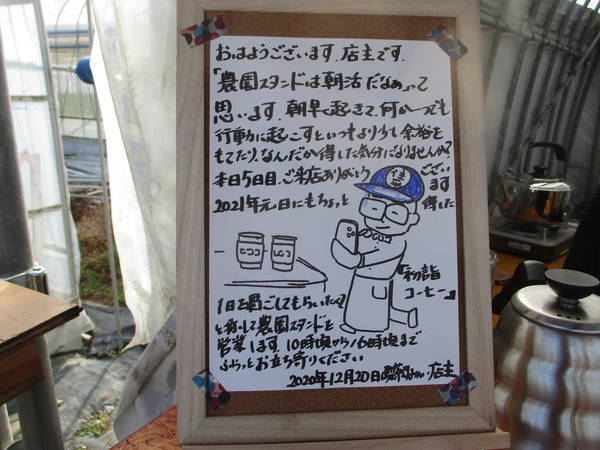 おはようございます、店主です。
「農園スタンドは朝活だなぁ」って
思います。朝早く起きて、何か一つでも
行動に起こすといつもより少し余裕を
もてたり、なんだか得した気分になりませんか?
本日5日目。ご来店ありがとうございます
2021年元日にもちょっと得した
「初詣
コーヒー』
1日を過ごしてもらいたくて
と称して農園スタンドを
営業します。10時頃から16時頃まで
ふらっとお立ち寄りください
2020年12月20日 店主